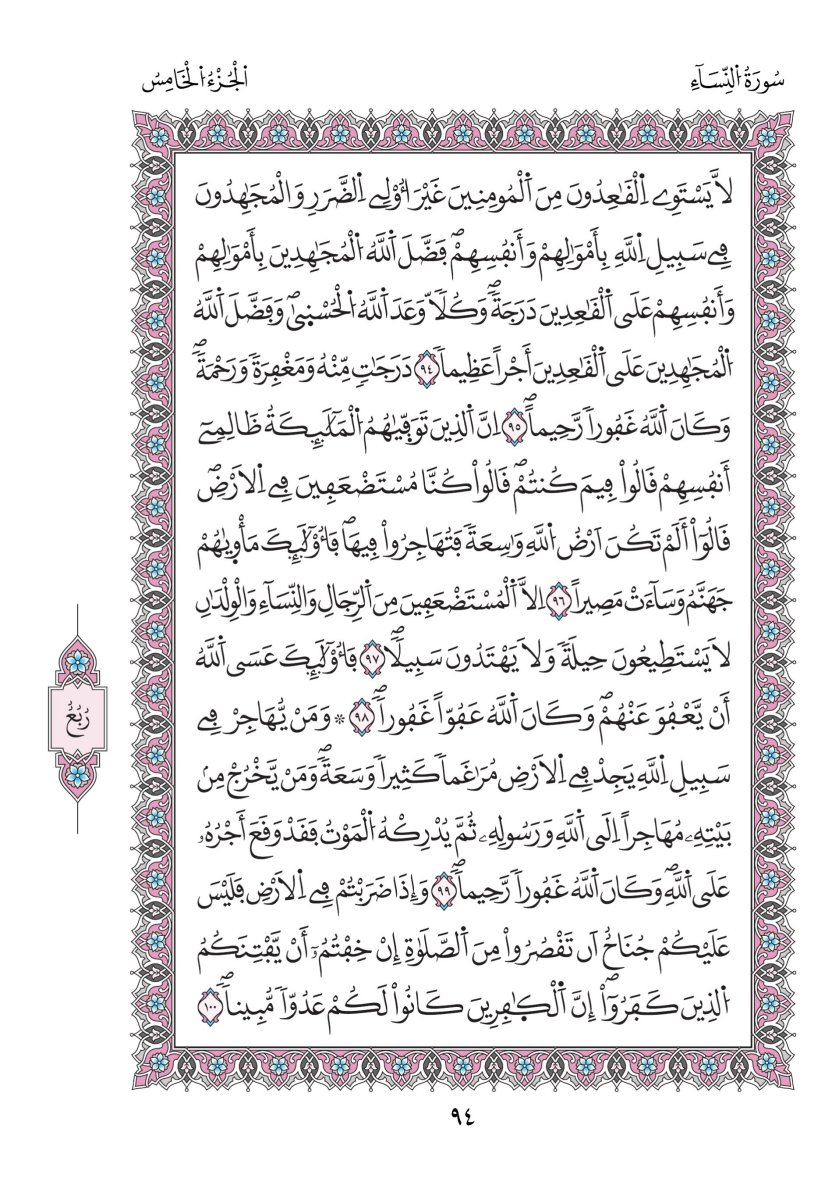 سُورَةُ اُ۬لنِّسَآءِ
اَ۬لْجُزْءُ اُ۬لْخَامِسُ
لَّا يَسْتَوِے اِ۬لْقَٰعِدُونَ مِنَ اَ۬لْمُومِنِينَ غَيْرَ أُوْلِے اِ۬لضَّرَرِ وَالْمُجَٰهِدُونَ
فِے سَبِيلِ اِ۬للَّهِ بِأَمْوَٰلِهِمْ وَأَنفُسِهِمْۖ فَضَّلَ اَ۬للَّهُ اُ۬لْمُجَٰهِدِينَ بِأَمْوَٰلِهِمْ
وَأَنفُسِهِمْ عَلَى اَ۬لْقَٰعِدِينَ دَرَجَةٗۖ وَكُلّاٗ وَعَدَ اَ۬للَّهُ اُ۬لْحُسْنۭيٰۖ وَفَضَّلَ اَ۬للَّهُ
اُ۬لْمُجَٰهِدِينَ عَلَى اَ۬لْقَٰعِدِينَ أَجْراً عَظِيماٗ ٩٤ دَرَجَٰتٖ مِّنْهُ وَمَغْفِرَةٗ وَرَحْمَةٗۖ
وَكَانَ اَ۬للَّهُ غَفُوراٗ رَّحِيماًۖ ٩٥ اِنَّ اَ۬لذِينَ تَوَفّۭيٰهُمُ اُ۬لْمَلَٰٓئِكَةُ ظَالِمِےٓ
أَنفُسِهِمْ قَالُواْ فِيمَ كُنتُمْۖ قَالُواْ كُنَّا مُسْتَضْعَفِينَ فِے اِ۬لَارْضِۖ
قَالُوٓاْ أَلَمْ تَكُنَ اَرْضُ اُ۬للَّهِ وَٰسِعَةٗ فَتُهَاجِرُواْ فِيهَاۖ فَأُوْلَٰٓئِكَ مَأْوۭيٰهُمْ
جَهَنَّمُ وَسَآءَتْ مَصِيراً ٩٦ اِلَّا اَ۬لْمُسْتَضْعَفِينَ مِنَ اَ۬لرِّجَالِ وَالنِّسَآءِ وَالْوِلْدَٰنِ
لَا يَسْتَطِيعُونَ حِيلَةٗ وَلَا يَهْتَدُونَ سَبِيلاٗۖ ٩٧ فَأُوْلَٰٓئِكَ عَسَى اَ۬للَّهُ
أَنْ يَّعْفُوَ عَنْهُمْۖ وَكَانَ اَ۬للَّهُ عَفُوّاً غَفُوراٗۖ ٩٨ * وَمَنْ يُّهَاجِرْ فِے
سَبِيلِ اِ۬للَّهِ يَجِدْ فِے اِ۬لَارْضِ مُرَٰغَماٗ كَثِيراٗ وَسَعَةٗۖ وَمَنْ يَّخْرُجْ مِنۢ
بَيْتِهِۦ مُهَاجِراً اِلَى اَ۬للَّهِ وَرَسُولِهِۦ ثُمَّ يُدْرِكْهُ اُ۬لْمَوْتُ فَقَدْ وَقَعَ أَجْرُهُۥ
عَلَى اَ۬للَّهِۖ وَكَانَ اَ۬للَّهُ غَفُوراٗ رَّحِيماٗۖ ٩٩ وَإِذَا ضَرَبْتُمْ فِے اِ۬لَارْضِ فَلَيْسَ
عَلَيْكُمْ جُنَاحٌ اَن تَقْصُرُواْ مِنَ اَ۬لصَّلَوٰةِ إِنْ خِفْتُمُۥٓ أَنْ يَّفْتِنَكُمُ
اُ۬لذِينَ كَفَرُوٓاْۖ إِنَّ اَ۬لْكٰ۪فِرِينَ كَانُواْ لَكُمْ عَدُوّاٗ مُّبِيناٗۖ ١٠٠
رُبُعُ
٩٤